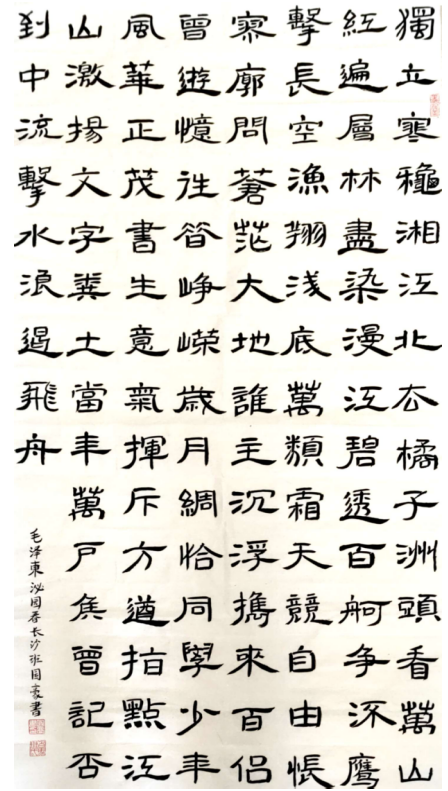 獨立寒穐湘江北厺橘子洲頭看萬山
紅遍層林盡染漫江碧透百舸争流鷹
擊長空漁翔淺底萬類霜天競自由悵
寥廓問蒼茫大地誰主沉浮擕來百侣
曾遊憶往昔峥嶸歲月綢恰同學少年
風華正茂書生意氣揮斥方遒指點江
山激揚文字糞土當年萬戶侯曾記否
到中流擊水浪遏飛舟
毛泽東泌园春长沙班国豪書